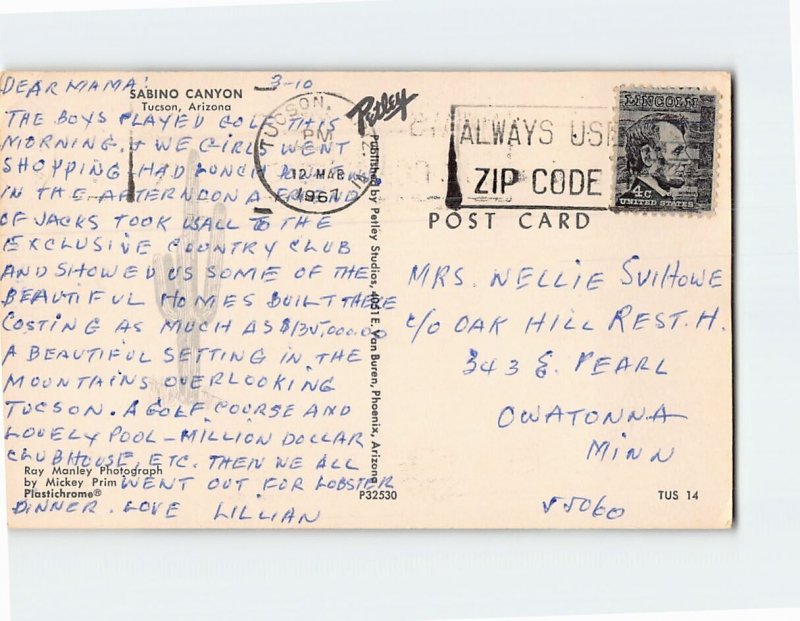 DEAR MAMA! 3-10
SABINO CANYON
Tucson, Arizona
THE BOYS PLAYED GOLF THIS
MORNING, & WE GIRLS WENT
SHOPPING - HAD LUNCH
IN THE AFTERNOON A FRIEND
OF JACKS TOOK US ALL TO THE
EXCLUSIVE COUNTRY CLUB
AND SHOWED US SOME OF THE
BEAUTIFUL HOMES BUILT THERE
COSTING AS MUCH AS $135,000.00
A BEAUTIFUL SETTING IN THE
MOUNTAINS OVERLOOKING
TUCSON. A GOLF COURSE AND
LOVELY POOL - MILLION DOLLAR
CLUBHOUSE, ETC. THEN WE ALL
WENT OUT FOR LOBSTER
DINNER. LOVE LILLIAN
Ray Manley Photograph
by Mickey Prim
Plastichrome®
Petley
Published by Petley Studios, 4051 E. Van Buren, Phoenix, Arizona
P32530
TUCSON,
PM
12 MAR
1967
ALWAYS USE
ZIP CODE
LINCOLN
4c
UNITED STATES
POST CARD
MRS. NELLIE SVIHOWE
c/o OAK HILL REST. H.
343 E. PEARL
OWATONNA
MINN
55060
TUS 14